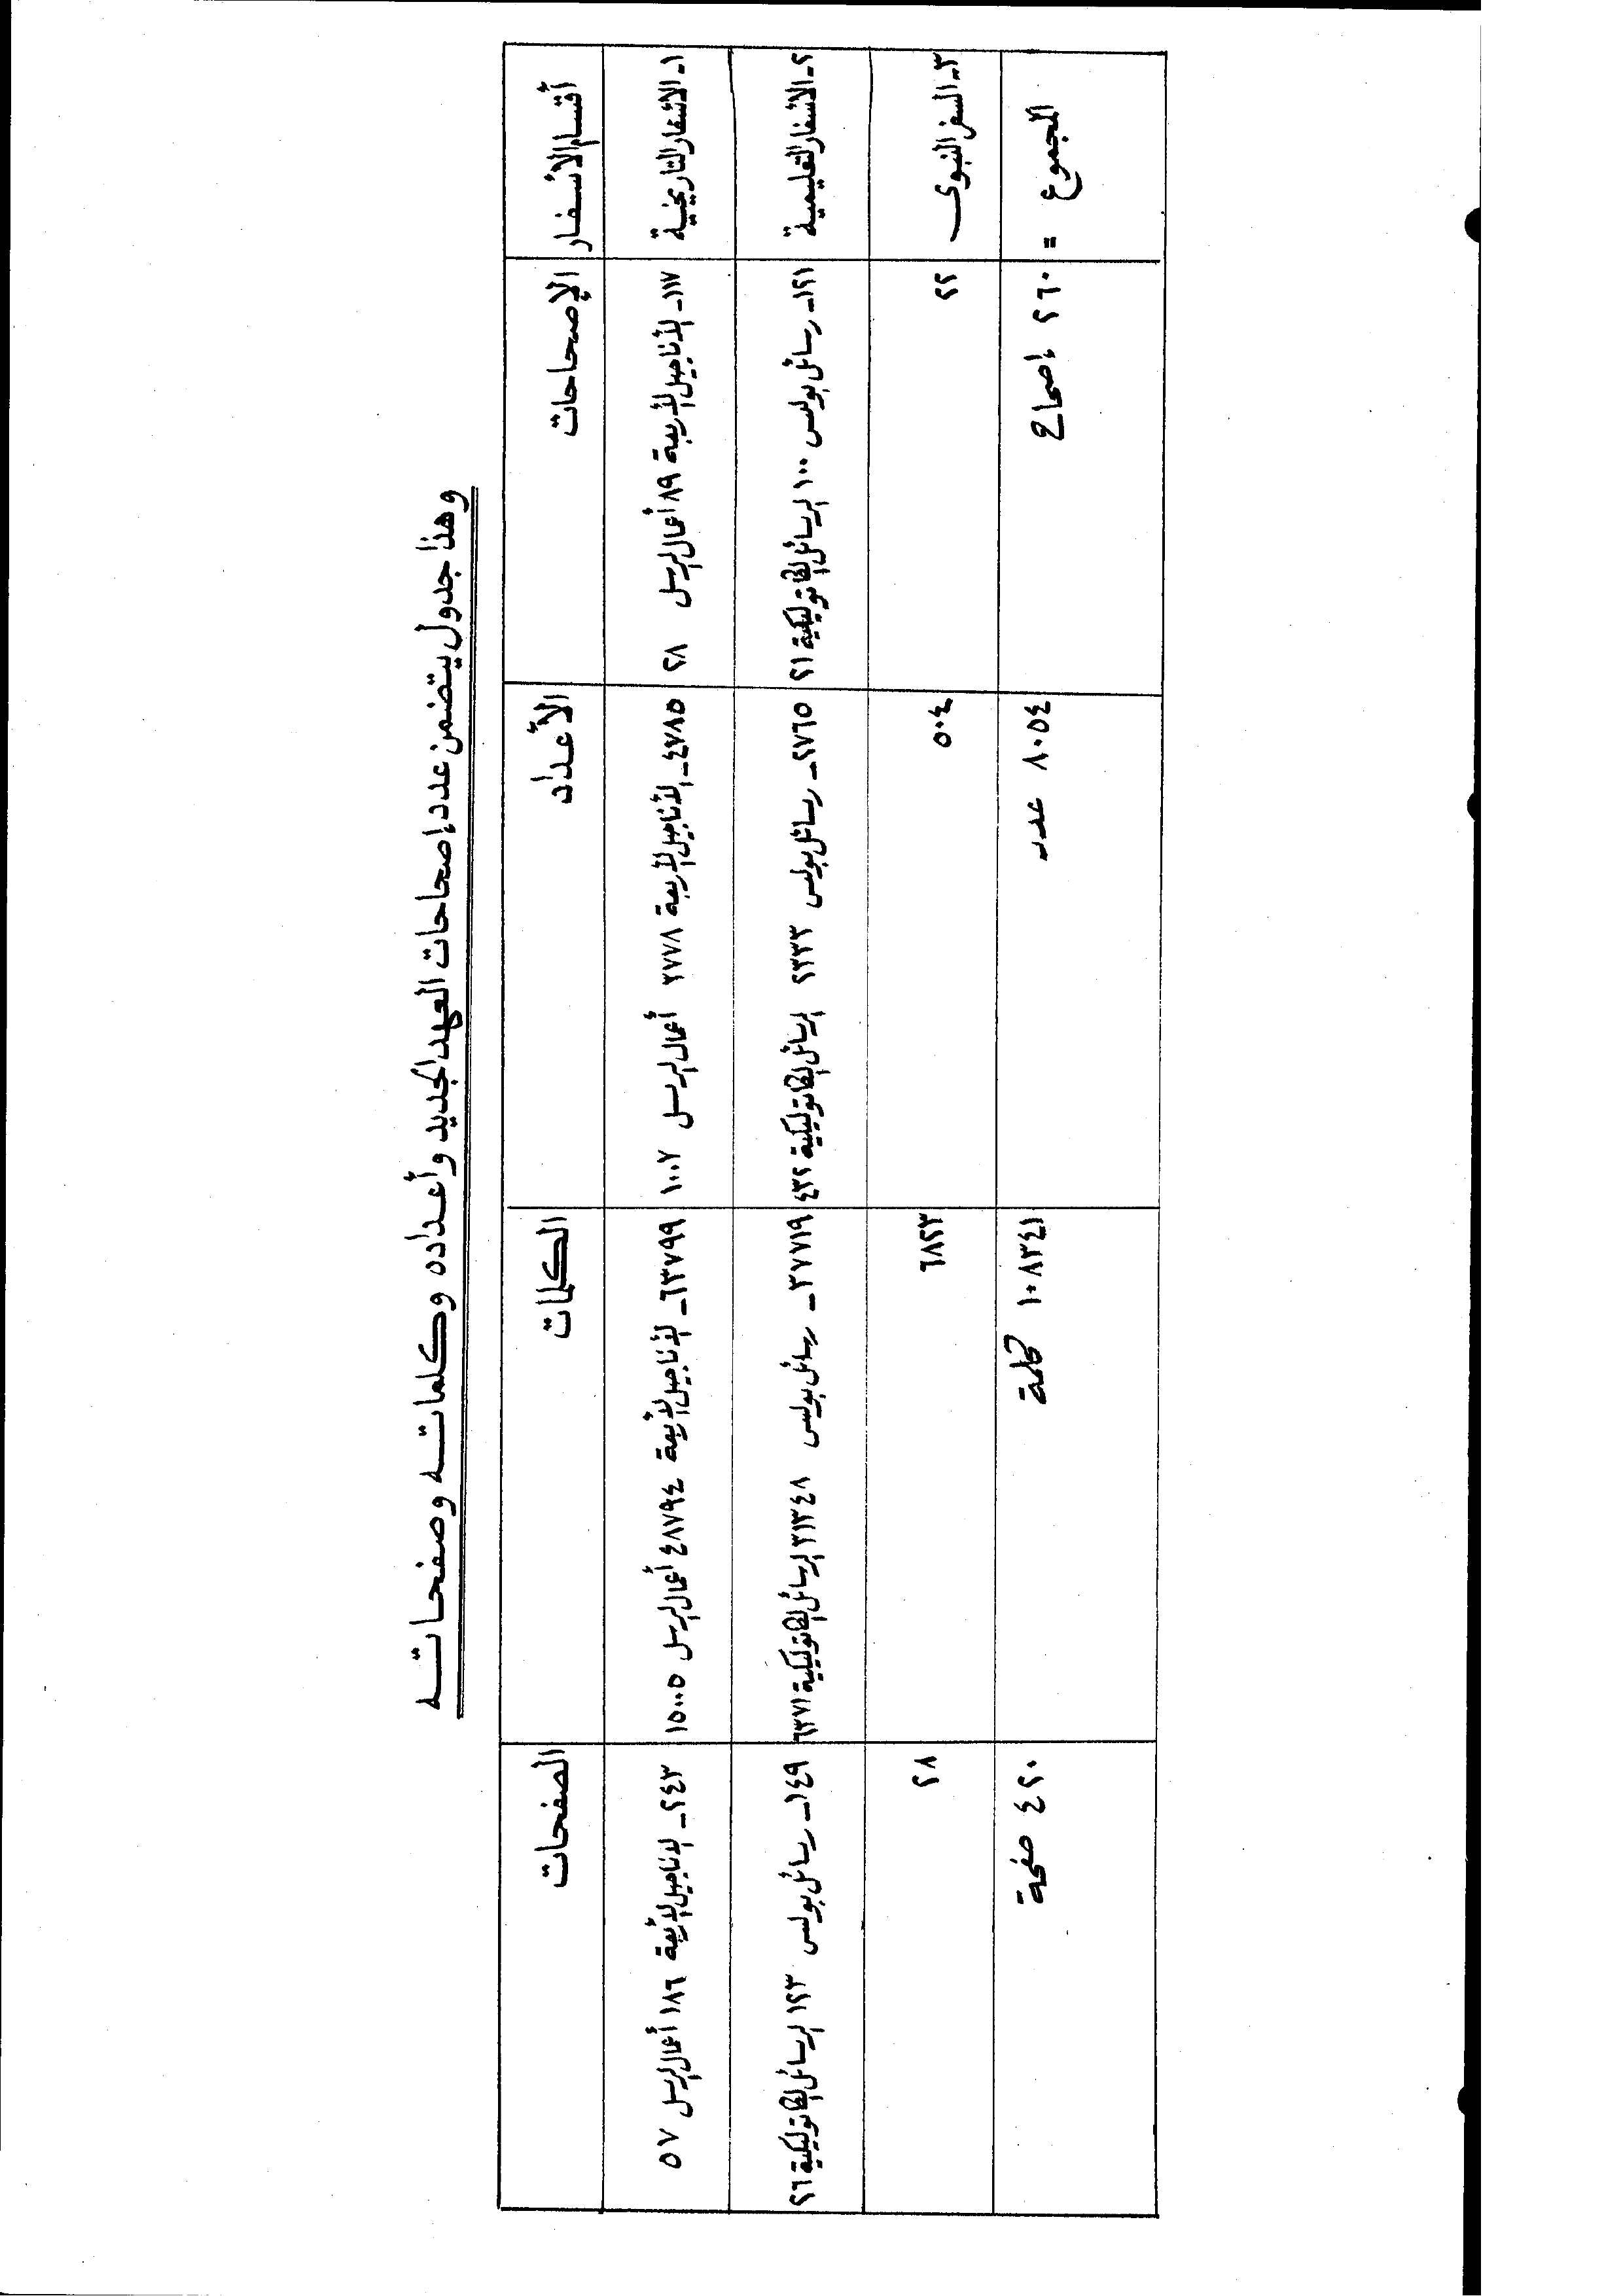 وهذا جدول يتضمن عدد إصحاحات العهد الجديد وأعداده وكلماته وصفحاته
أقسام الأسفار الإصحاحات الأعداد الكلمات الصفحات
١- الأسفار التاريخية ١١٧- الأناجيل الأربعة ٨٩ أعمال الرسل ٢٨ ٤٧٨٥- الأناجيل الأربعة ٣٧٧٨ أعمال الرسل ١٠٠٧ ٦٣٧٩٩- الأناجيل الأربعة ٤٨٧٩٤ أعمال الرسل ١٥٠٠٥ ٢٤٣- الأناجيل الأربعة ١٨٦ أعمال الرسل ٥٧
٢- الأسفار التعليمية ١٢١- رسائل بولس ١٠٠ الرسائل الكاثوليكية ٢١ ٢٧٦٥- رسائل بولس ٢٣٣٣ الرسائل الكاثوليكية ٤٣٢ ٣٧٧١٩- رسائل بولس ٣١٣٤٨ الرسائل الكاثوليكية ٦٣٧١ ١٤٩- رسائل بولس ١٢٣ الرسائل الكاثوليكية ٢٦
٣- السفر النبوى ٢٢ ٥٠٤ ٦٨٢٣ ٢٨
المجموع = ٢٦٠ إصحاح ٨٠٥٤ عدد ١٠٨٣٤١ كلمة ٤٢٠ صفحة